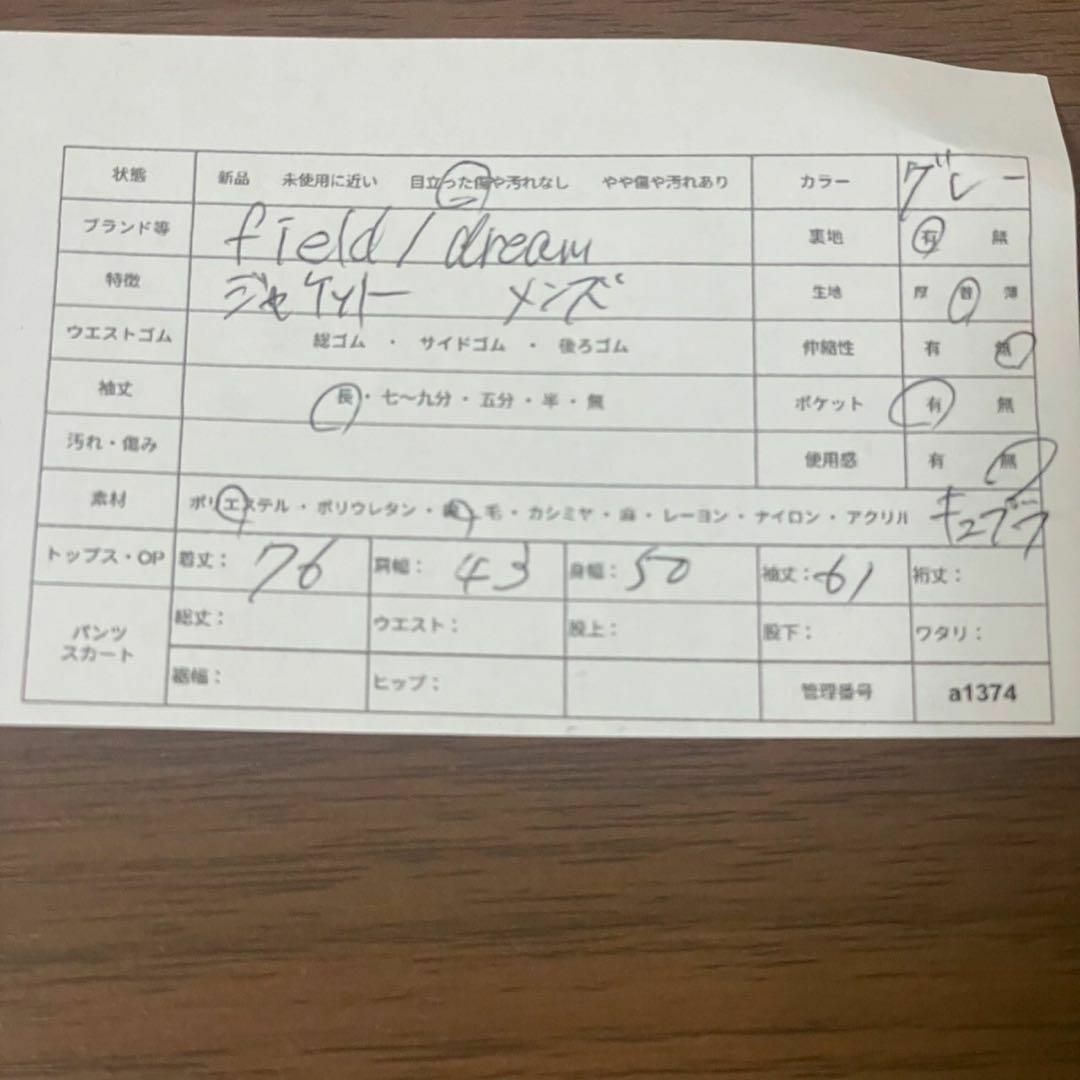 状態 新品 未使用に近い 目立った傷や汚れなし やや傷や汚れあり カラー グレー
ブランド等 field/dream 裏地 有 無
特徴 ジャケット メンズ 生地 厚 普 薄
ウエストゴム 総ゴム ・ サイドゴム ・ 後ろゴム 伸縮性 有 無
袖丈 長・七〜九分・五分・半・無 ポケット 有 無
汚れ・傷み 使用感 有 無
素材 ポリエステル・ポリウレタン・綿・毛・カシミヤ・麻・レーヨン・ナイロン・アクリル キュプラ
トップス・OP 着丈: 76 肩幅: 43 身幅: 50 袖丈: 61 裄丈:
パンツ スカート 総丈: ウエスト: 股上: 股下: ワタリ:
裾幅: ヒップ: 管理番号 a1374